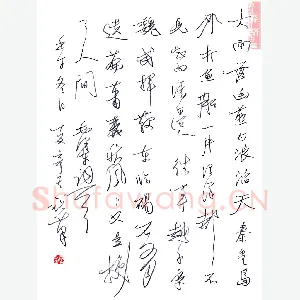 大雨落幽燕白浪滔天秦皇岛
外打鱼船一片汪洋都不
见知向谁边往事越千年
魏武挥鞭东临碣石有
遗篇萧瑟秋风今又是换
了人间
冬日
Shufawang.CN